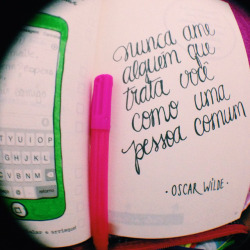 nunca ame
alguém que
trata você
como uma
pessoa comum
· OSCAR WILDE ·
T Y U I O P
G H J K L
V B N M